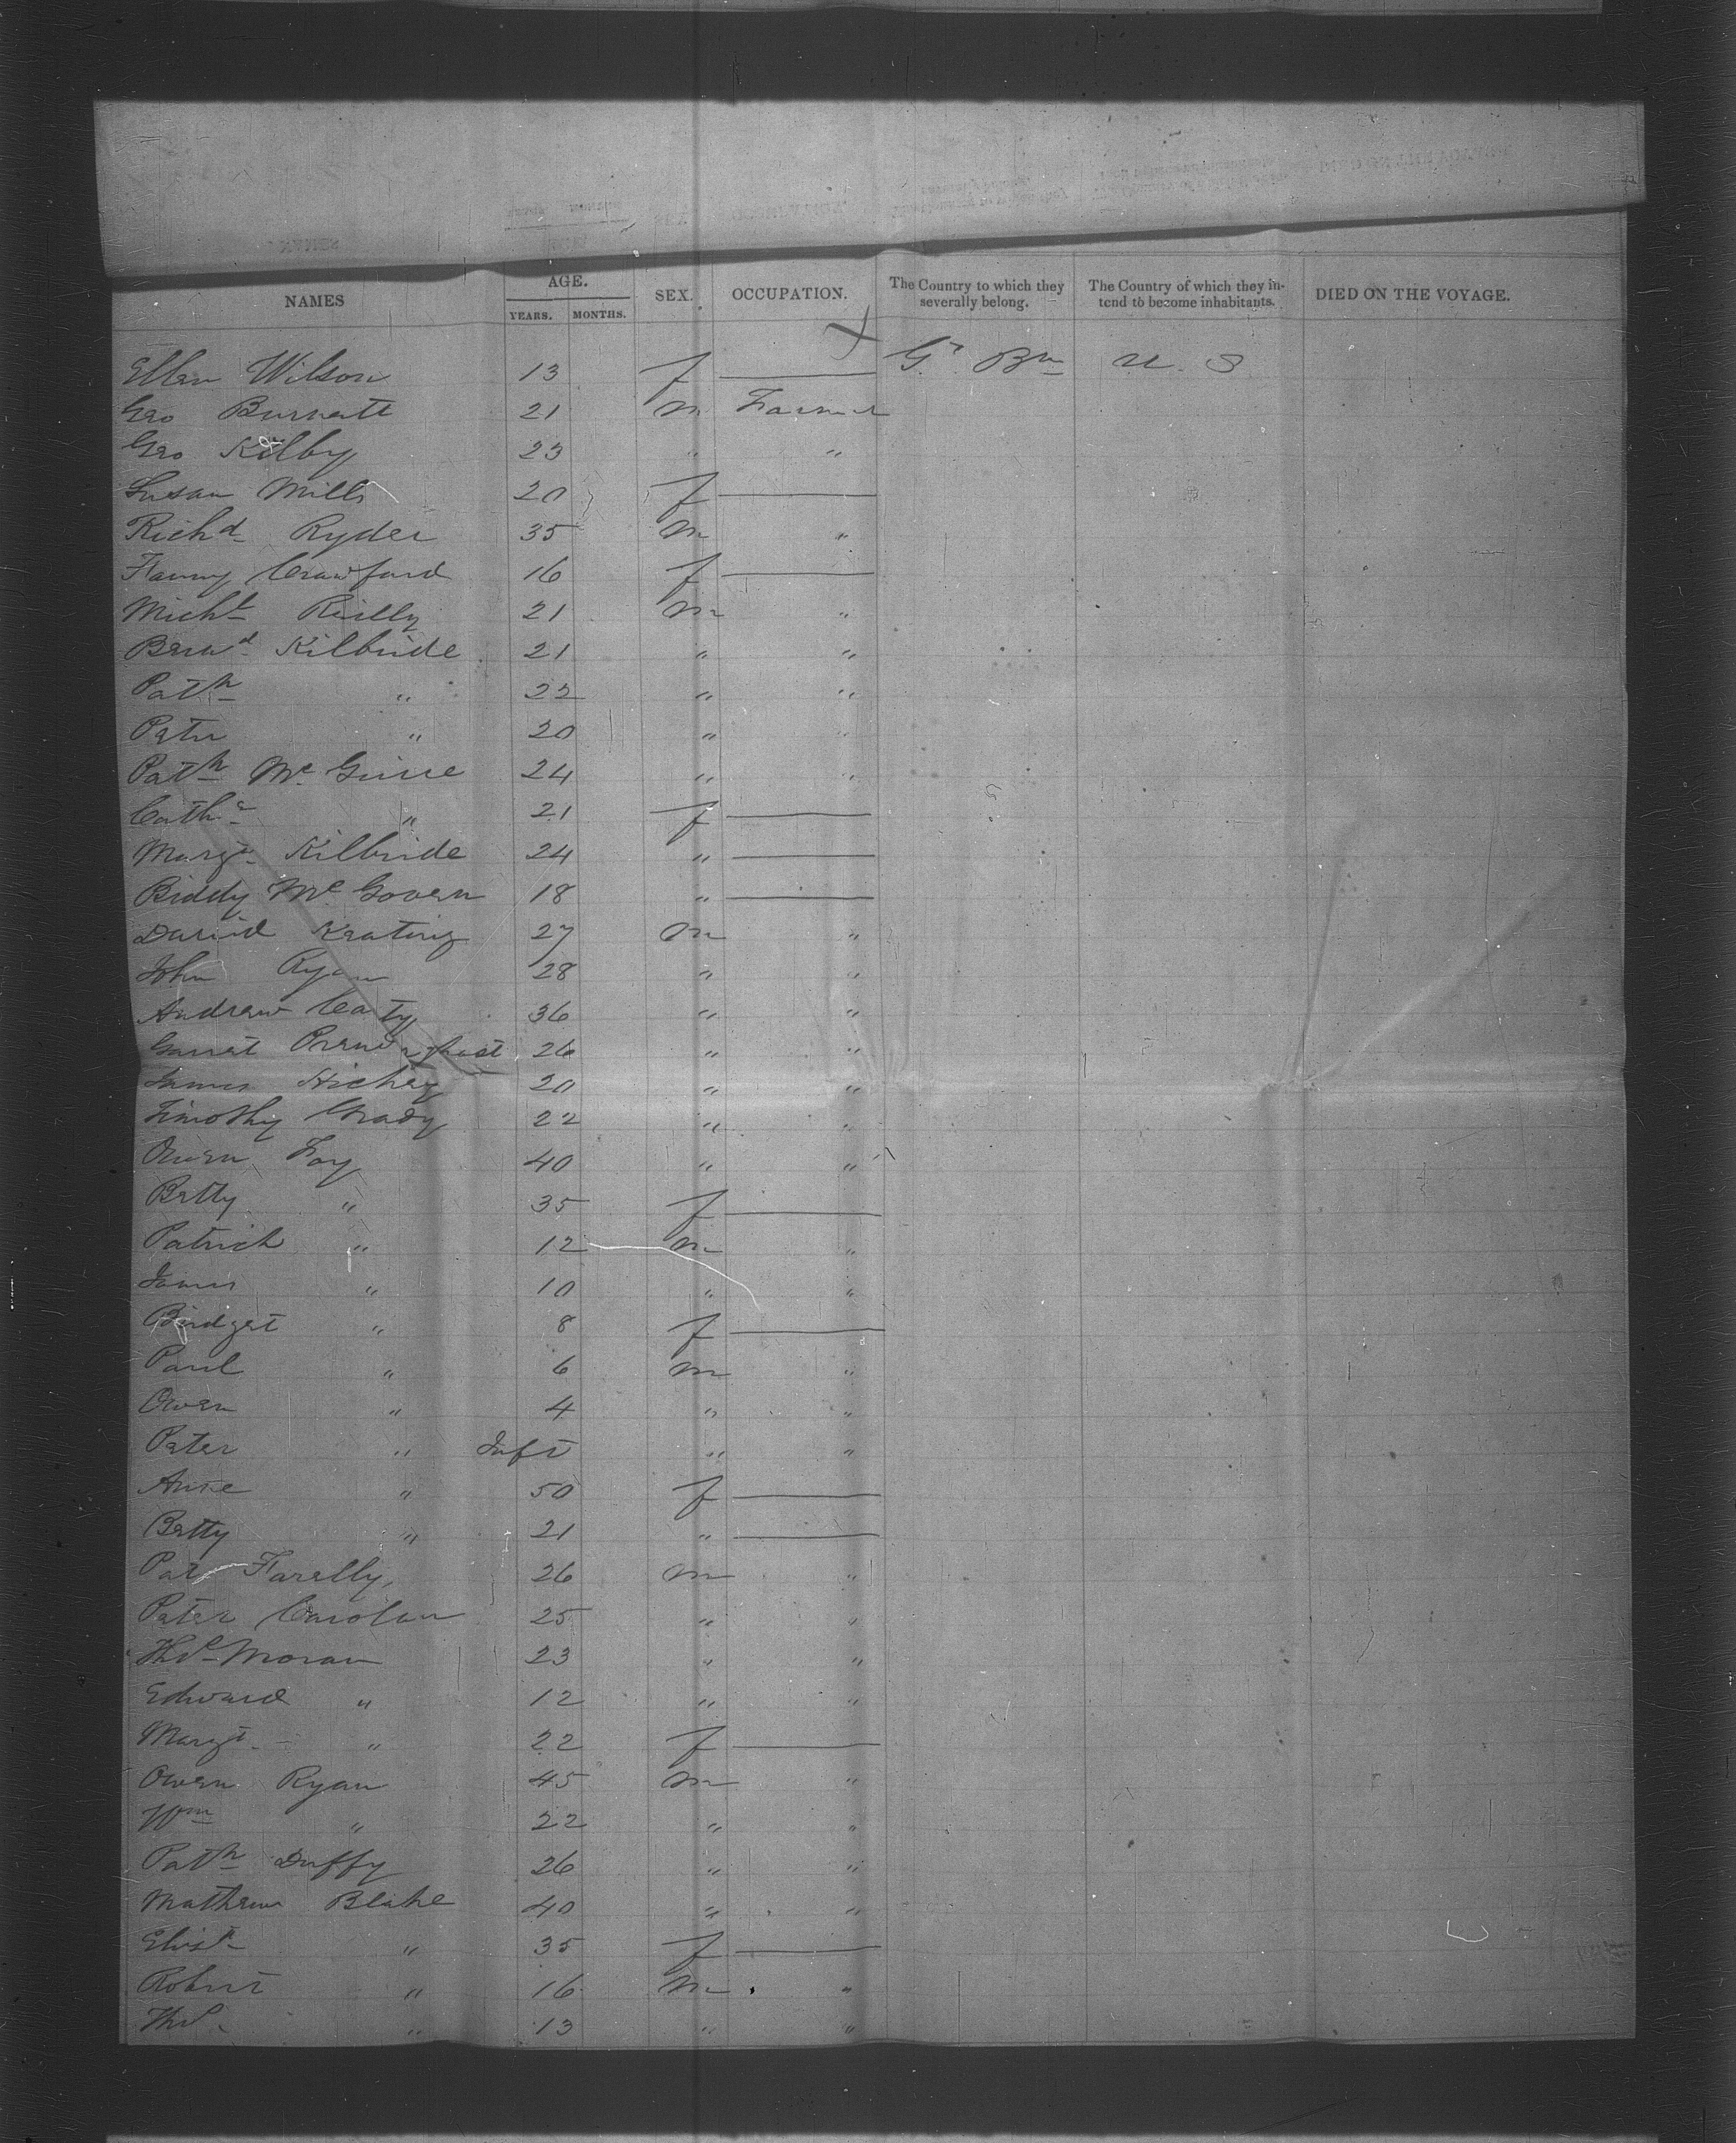 NAMES AGE. SEX. OCCUPATION. The Country to which they severally belong. The Country of which they in-tend to become inhabitants. DIED ON THE VOYAGE.
YEARS. MONTHS.
Ellen Wilson 13 f — Gt Bn U. S
Geo Burnett 21 m Farmer
Geo Kilby 23 " "
Susan Mills 20 f —
Richd Ryder 35 m "
Fanny Crawford 16 f —
Michl Reilly 21 m "
Bernd Kilbride 21 " "
Patk " 22 " "
Peter " 20 " "
Patk Mc Guire 24 " "
Cathe " 21 f —
Margt Kilbride 24 " —
Biddy Mc Govern 18 " —
David Keating 27 m "
John Ryan 28 " "
Andrew Carty 36 " "
Garret Prendergast 26 " "
James Hickey 20 " "
Timothy Grady 22 " "
Owen Foy 40 " "
Betty " 35 f —
Patrick " 12 m "
James " 10 " "
Bridget " 8 f —
Paul " 6 m "
Owen " 4 " "
Peter " Inft " "
Anne " 50 f —
Betty " 21 " —
Pat Farelly 26 m "
Peter Carolan 25 " "
Thos Moran 23 " "
Edward " 12 " "
Margt " 22 f —
Owen Ryan 45 m "
Wm " 22 " "
Patk Duffy 26 " "
Mathew Blake 40 " "
Elizth " 35 f —
Robert " 16 m "
Thos " 13 " "